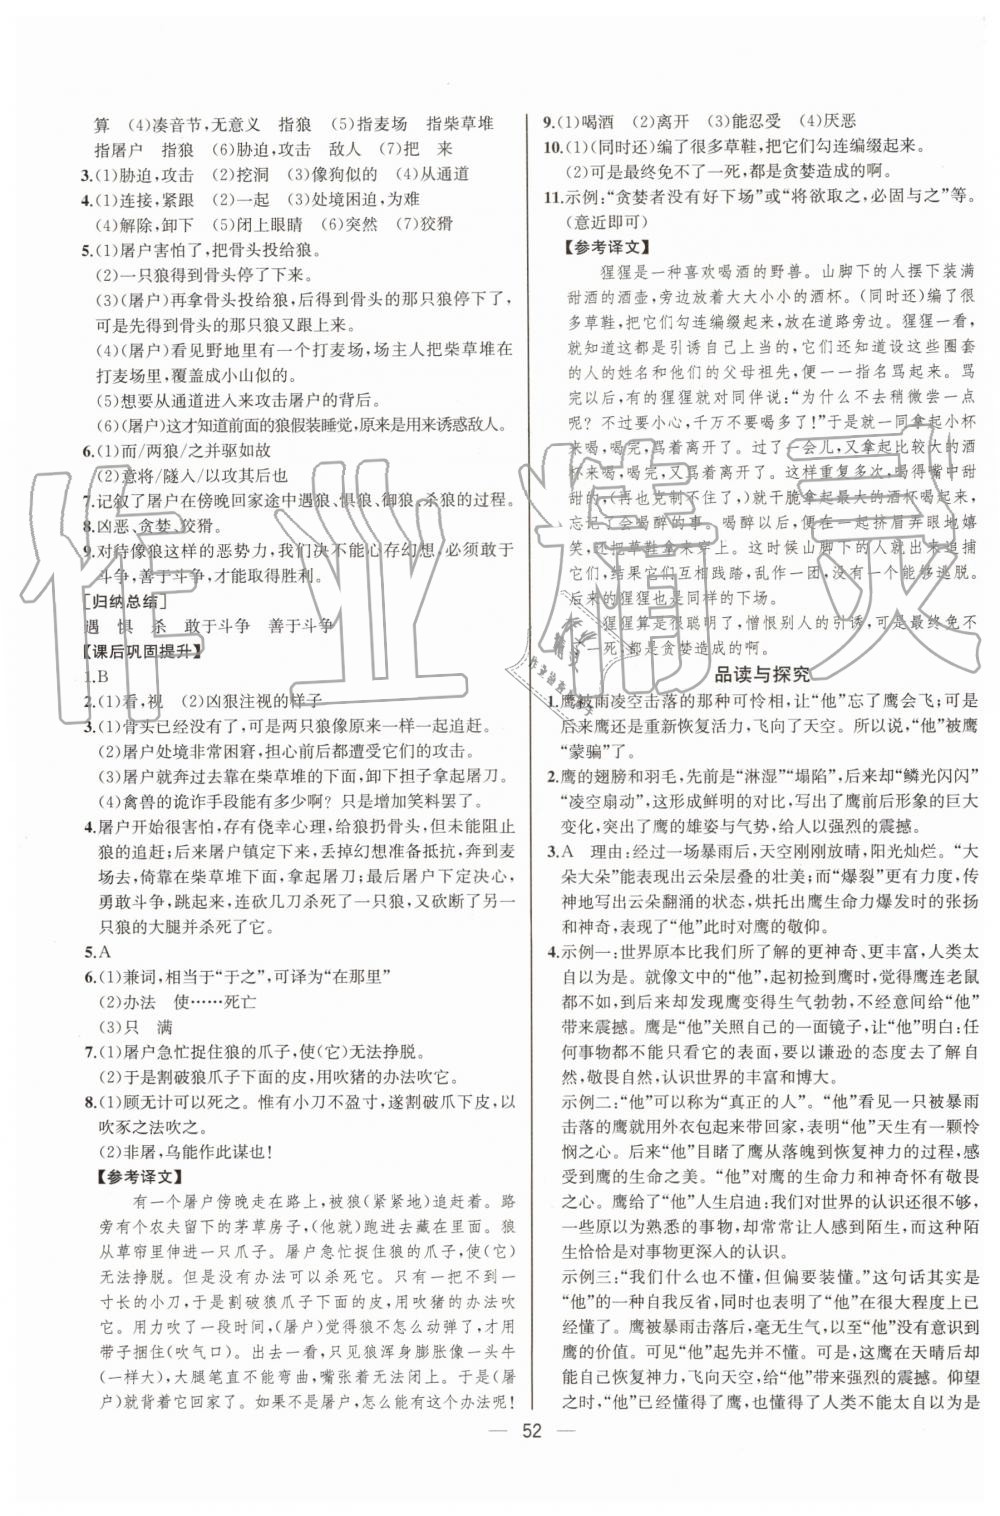 算　(4)凑音节,无意义　指狼　(5)指麦场　指柴草堆
指屠户　指狼　(6)胁迫,攻击　敌人　(7)把　来
3.(1)胁迫,攻击　(2)挖洞　(3)像狗似的　(4)从通道
4.(1)连接,紧跟　(2)一起　(3)处境困迫,为难
(4)解除,卸下　(5)闭上眼睛　(6)突然　(7)狡猾
5.(1)屠户害怕了,把骨头投给狼。
(2)一只狼得到骨头停了下来。
(3)(屠户)再拿骨头投给狼,后得到骨头的那只狼停了下来,
可是先得到骨头的那只狼又跟上来。
(4)(屠户)看见野地里有一个打麦场,场主人把柴草堆在
打麦场里,覆盖成小山似的。
(5)想要从通道进入来攻击屠户的背后。
(6)(屠户)这才知道前面的狼假装睡觉,原来是用来诱惑敌人。
6.(1)而/两狼/之并驱如故
(2)意将/隧入/以攻其后也
7.记叙了屠户在傍晚回家途中遇狼、惧狼、御狼、杀狼的过程。
8.凶恶、贪婪、狡猾。
9.对待像狼这样的恶势力,我们决不能心存幻想,必须敢于
斗争,善于斗争,才能取得胜利。
[归纳总结]
遇　惧　杀　敢于斗争　善于斗争
【课后巩固提升】
1.B
2.(1)看,视　(2)凶狠注视的样子
3.(1)骨头已经没有了,可是两只狼像原来一样一起追赶。
(2)屠户处境非常困窘,担心前后都遭受它们的攻击。
(3)屠户就奔过去靠在柴草堆的下面,卸下担子拿起屠刀。
(4)禽兽的诡诈手段能有多少啊?只是增加笑料罢了。
4.屠户开始很害怕,存有侥幸心理,给狼扔骨头,但未能阻止
狼的追赶;后来屠户镇定下来,丢掉幻想准备抵抗,奔到麦
场去,倚靠在柴草堆下面,拿起屠刀;最后屠户下定决心,
勇敢斗争,跳起来,连砍几刀杀死了一只狼,又砍断了另一
只狼的大腿并杀死了它。
5.A
6.(1)兼词,相当于“于之”,可译为“在那里”
(2)办法　使……死亡
(3)只　满
7.(1)屠户急忙捉住狼的爪子,使(它)无法挣脱。
(2)于是割破狼爪子下面的皮,用吹猪的办法吹它。
8.(1)顾无计可以死之。惟有小刀不盈寸,遂割破爪下皮,以
吹豕之法吹之。
(2)非屠,乌能作此谋也!
【参考译文】
有一个屠户傍晚走在路上,被狼(紧紧地)追赶着。路
旁有个农夫留下的茅草房子,(他就)跑进去藏在里面。狼
从草帘里伸进一只爪子。屠户急忙捉住狼的爪子,使(它)
无法挣脱。但是没有办法可以杀死它。只有一把不到一
寸长的小刀,于是割破狼爪子下面的皮,用吹猪的办法吹
它。用力吹了一段时间,(屠户)觉得狼不怎么动弹了,才用
带子捆住(吹气口)。出去一看,只见狼浑身膨胀像一头牛
(一样大),大腿笔直不能弯曲,嘴张着无法闭上。于是(屠
户)就背着它回了家。如果不是屠户,怎么能有这个办法呢!
9.(1)喝酒　(2)离开　(3)能忍受　(4)厌恶
10.(1)(同时还)编了很多草鞋,把它们勾连编缀起来。
(2)可是最终免不了一死,都是贪婪造成的啊。
11.示例:“贪婪者没有好下场”或“将欲取之,必固与之”等。
(意近即可)
【参考译文】
猩猩是一种喜欢喝酒的野兽。山脚下的人摆下装满
甜酒的酒壶,旁边放着大大小小的酒杯。(同时还)编了很
多草鞋,把它们勾连编缀起来,放在道路旁边。猩猩一看,
就知道这些都是引诱自己上当的,它们还知道设这些圈套
的人的姓名和他们的父母祖先,便一一指名骂起来。骂
完以后,有的猩猩就对同伴说:“为什么不去稍微尝一点
呢?不过要小心,千万不要喝多了!”于是就一起拿起小杯
来喝,喝完,骂着离开了。过了一会儿,又拿起比较大的酒
杯来喝,喝完,又骂着离开了。这样重复多次,喝得嘴中甜
甜的,(再也克制不住了,)就干脆拿起最大的酒杯喝起来,
忘记了会喝醉的事。喝醉以后,便在一起挤眉弄眼地嬉
笑,还把草鞋拿来穿上。这时候山脚下的人就出来追捕
它们,结果它们互相践踏,乱作一团,没有一个能够逃脱。
后来的猩猩也是同样的下场。
猩猩算是很聪明了,憎恨别人的引诱,可是最终免不
了一死,都是贪婪造成的啊。
品读与探究
1.鹰被雨凌空击落的那种可怜相,让“他”忘了鹰会飞;可是
后来鹰还是重新恢复活力,飞向了天空。所以说,“他”被鹰
“蒙骗”了。
2.鹰的翅膀和羽毛,先前是“淋湿”“塌陷”,后来却“鳞光闪闪”
“凌空扇动”,这形成鲜明的对比,写出了鹰前后形象的巨大
变化,突出了鹰的雄姿与气势,给人以强烈的震撼。
3.A　理由:经过一场暴雨后,天空刚刚放晴,阳光灿烂。“大
朵大朵”能表现出云朵层叠的壮美;而“爆裂”更能准确、传
神地写出云朵翻涌的状态,烘托出鹰生命力爆发时的张扬
和神气,表达了“他”此时对鹰的敬仰。
4.示例一:世界原本比我们所了解的更神奇、更丰富,人类太
自以为是。就像文中的“他”,起初捡到鹰时,觉得鹰连老鼠
都不如,到后来却发现鹰变得生气勃勃,不经意间给“他”
带来震撼。鹰是“他”关照自己的一面镜子,让“他”明白:任
何事物都不能只看它的表面,要以谦逊的态度去了解自
然,敬畏自然,认识世界的丰富和博大。
示例二:“他”可以称为“真正的人”。“他”看见一只被暴雨
击落的鹰就用外衣包起来带回家,表明“他”天生有一颗怜
悯之心。“他”目睹了鹰从落魄到恢复神力的过程,感
受到鹰的生命之美。“他”对鹰的生命力和神奇怀有敬畏
之心。鹰给了“他”人生启迪:我们对世界的认识还很不够,
一些原以为熟悉的事物,却常常让人感到陌生,而这种陌
生恰恰是对事物更深入的认识。
示例三:“我们什么也不懂,但偏要装懂。”这句话其实是
“他”的一种自我反省,同时也表明了“他”在很大程度上已
经懂了。鹰被暴雨击落后,毫无生气,以至“他”没有意识到
鹰的价值。可见“他”起先并不懂。可是,这鹰在天晴后却
能自己恢复神力,飞向天空,发生了神奇的变化。仰望
之时,“他”已经懂得了鹰,也懂得了人类不能太自以为是
— 52 —
作业精灵